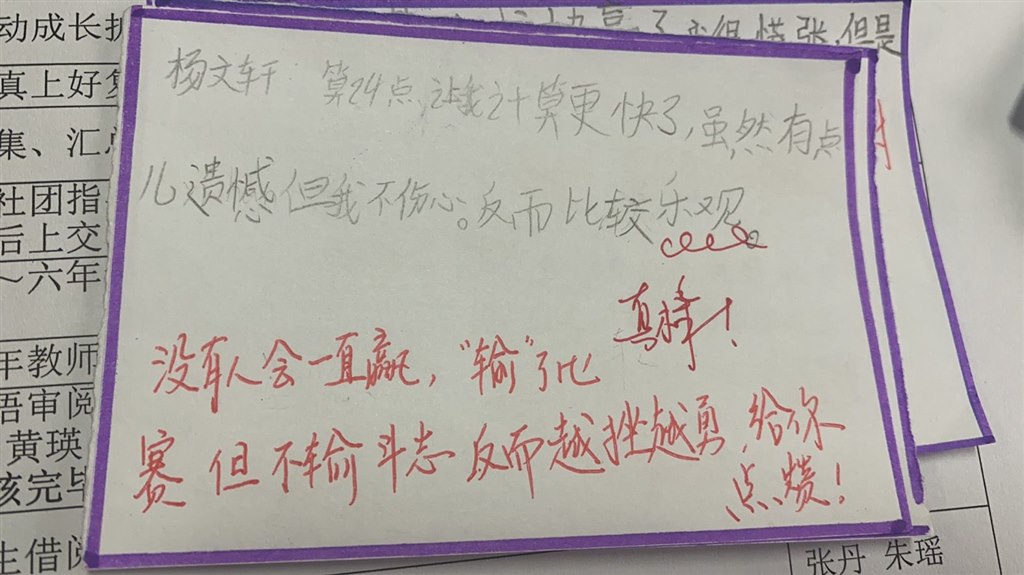 动成长
了 我很慌张,但是
真上好
集、汇
社团指
后上交
～六年
年教师
吾审阅
黄瑛
亥完毕
生借阅
杨文轩 算24点,让我计算更快了,虽然有点
儿遗憾但我不伤心。反而比较乐观。
真棒!
没有人会一直赢,“输”了比
赛但不输斗志反而越挫越勇,给你
点赞!
张丹 朱瑶